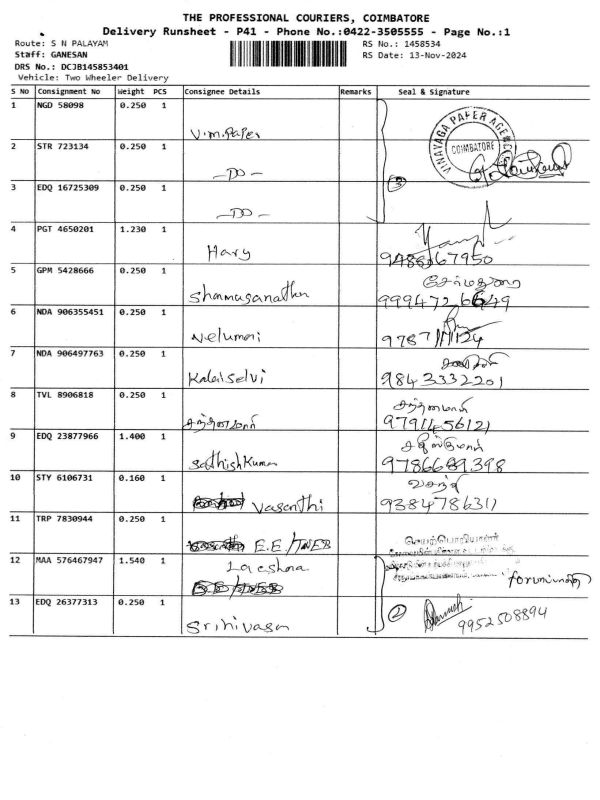 THE PROFESSIONAL COURIERS, COIMBATORE
Delivery Runsheet - P41 - Phone No.:0422-3505555 - Page No.:1
Route: S N PALAYAM
RS No.: 1458534
Staff: GANESAN
RS Date: 13-Nov-2024
DRS No.: DCJB145853401
Vehicle: Two Wheeler Delivery
S No Consignment No Weight PCS Consignee Details Remarks Seal & Signature
1 NGD 58098 0.250 1 V.M.Paper
VINAYAGA PAPER AGENC COIMBATORE
2 STR 723134 0.250 1 -DO-
3 EDQ 16725309 0.250 1 -DO-
3
4 PGT 4650201 1.230 1 Hary
5 GPM 5428666 0.250 1 9994726649
6 NDA 906355451 0.250 1 Velumani
7 NDA 906497763 0.250 1 Kalaiselvi 9843332201
8 TVL 8906818 0.250 1 9791456121
9 EDQ 23877966 1.400 1 SathishKumar 9786689398
10 STY 6106731 0.160 1 Vasanthi வசந்தி 9384786311
11 TRP 7830944 0.250 1 E.E/TNEB
12 MAA 576467947 1.540 1
13 EDQ 26377313 0.250 1 Srinivasan 2 9952508894